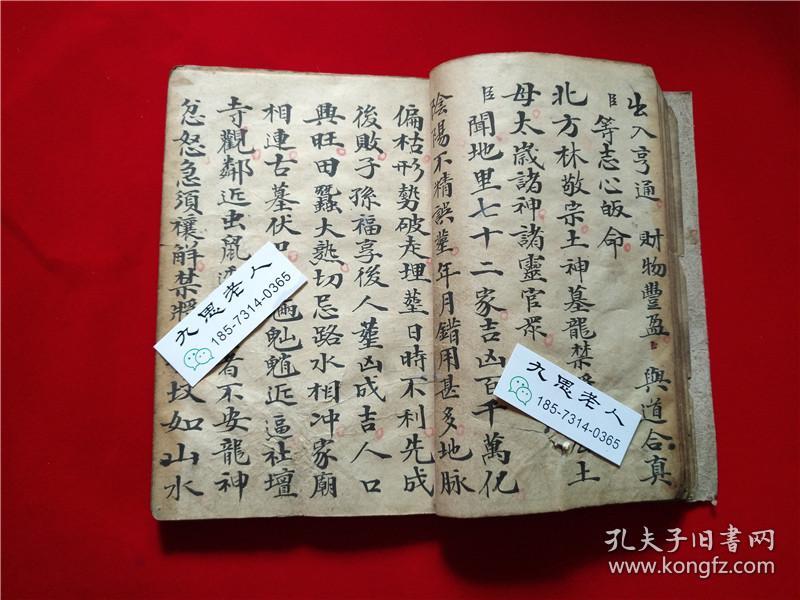 出入亨通 財物豐盈 與道合真
臣等志心皈命
北方林敬宗土神墓龍禁 土
母太歲諸神諸靈官眾
臣聞地里七十二家吉凶百千萬化
陰陽不精誤塟年月錯用甚多地脉
偏枯形勢破走埋塟日時不利先成
後敗子孫福享後人塟凶成吉人口
興旺田蠶大熟切忌路水相冲家廟
相連古墓伏 魈近逼社壇
寺觀鄰近虫鼠 者不安龍神
忿怒急須禳解禁將 坟如山水
九思老人
185-7314-0365
九思老人
185-7314-0365
孔夫子旧书网
www.kongfz.com